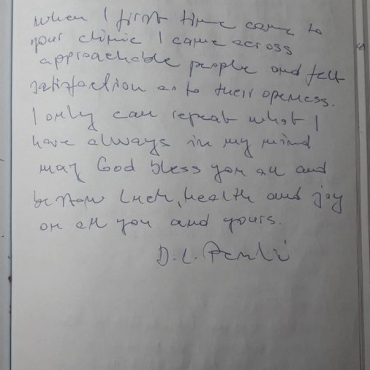 when I first time came to
your clinic I came across
approachable people and felt
satisfaction as to their openess.
I only can repeat what I
have always in my mind
may God bless you all and
bestow luck, health and joy
on all you and yours.
D. L.